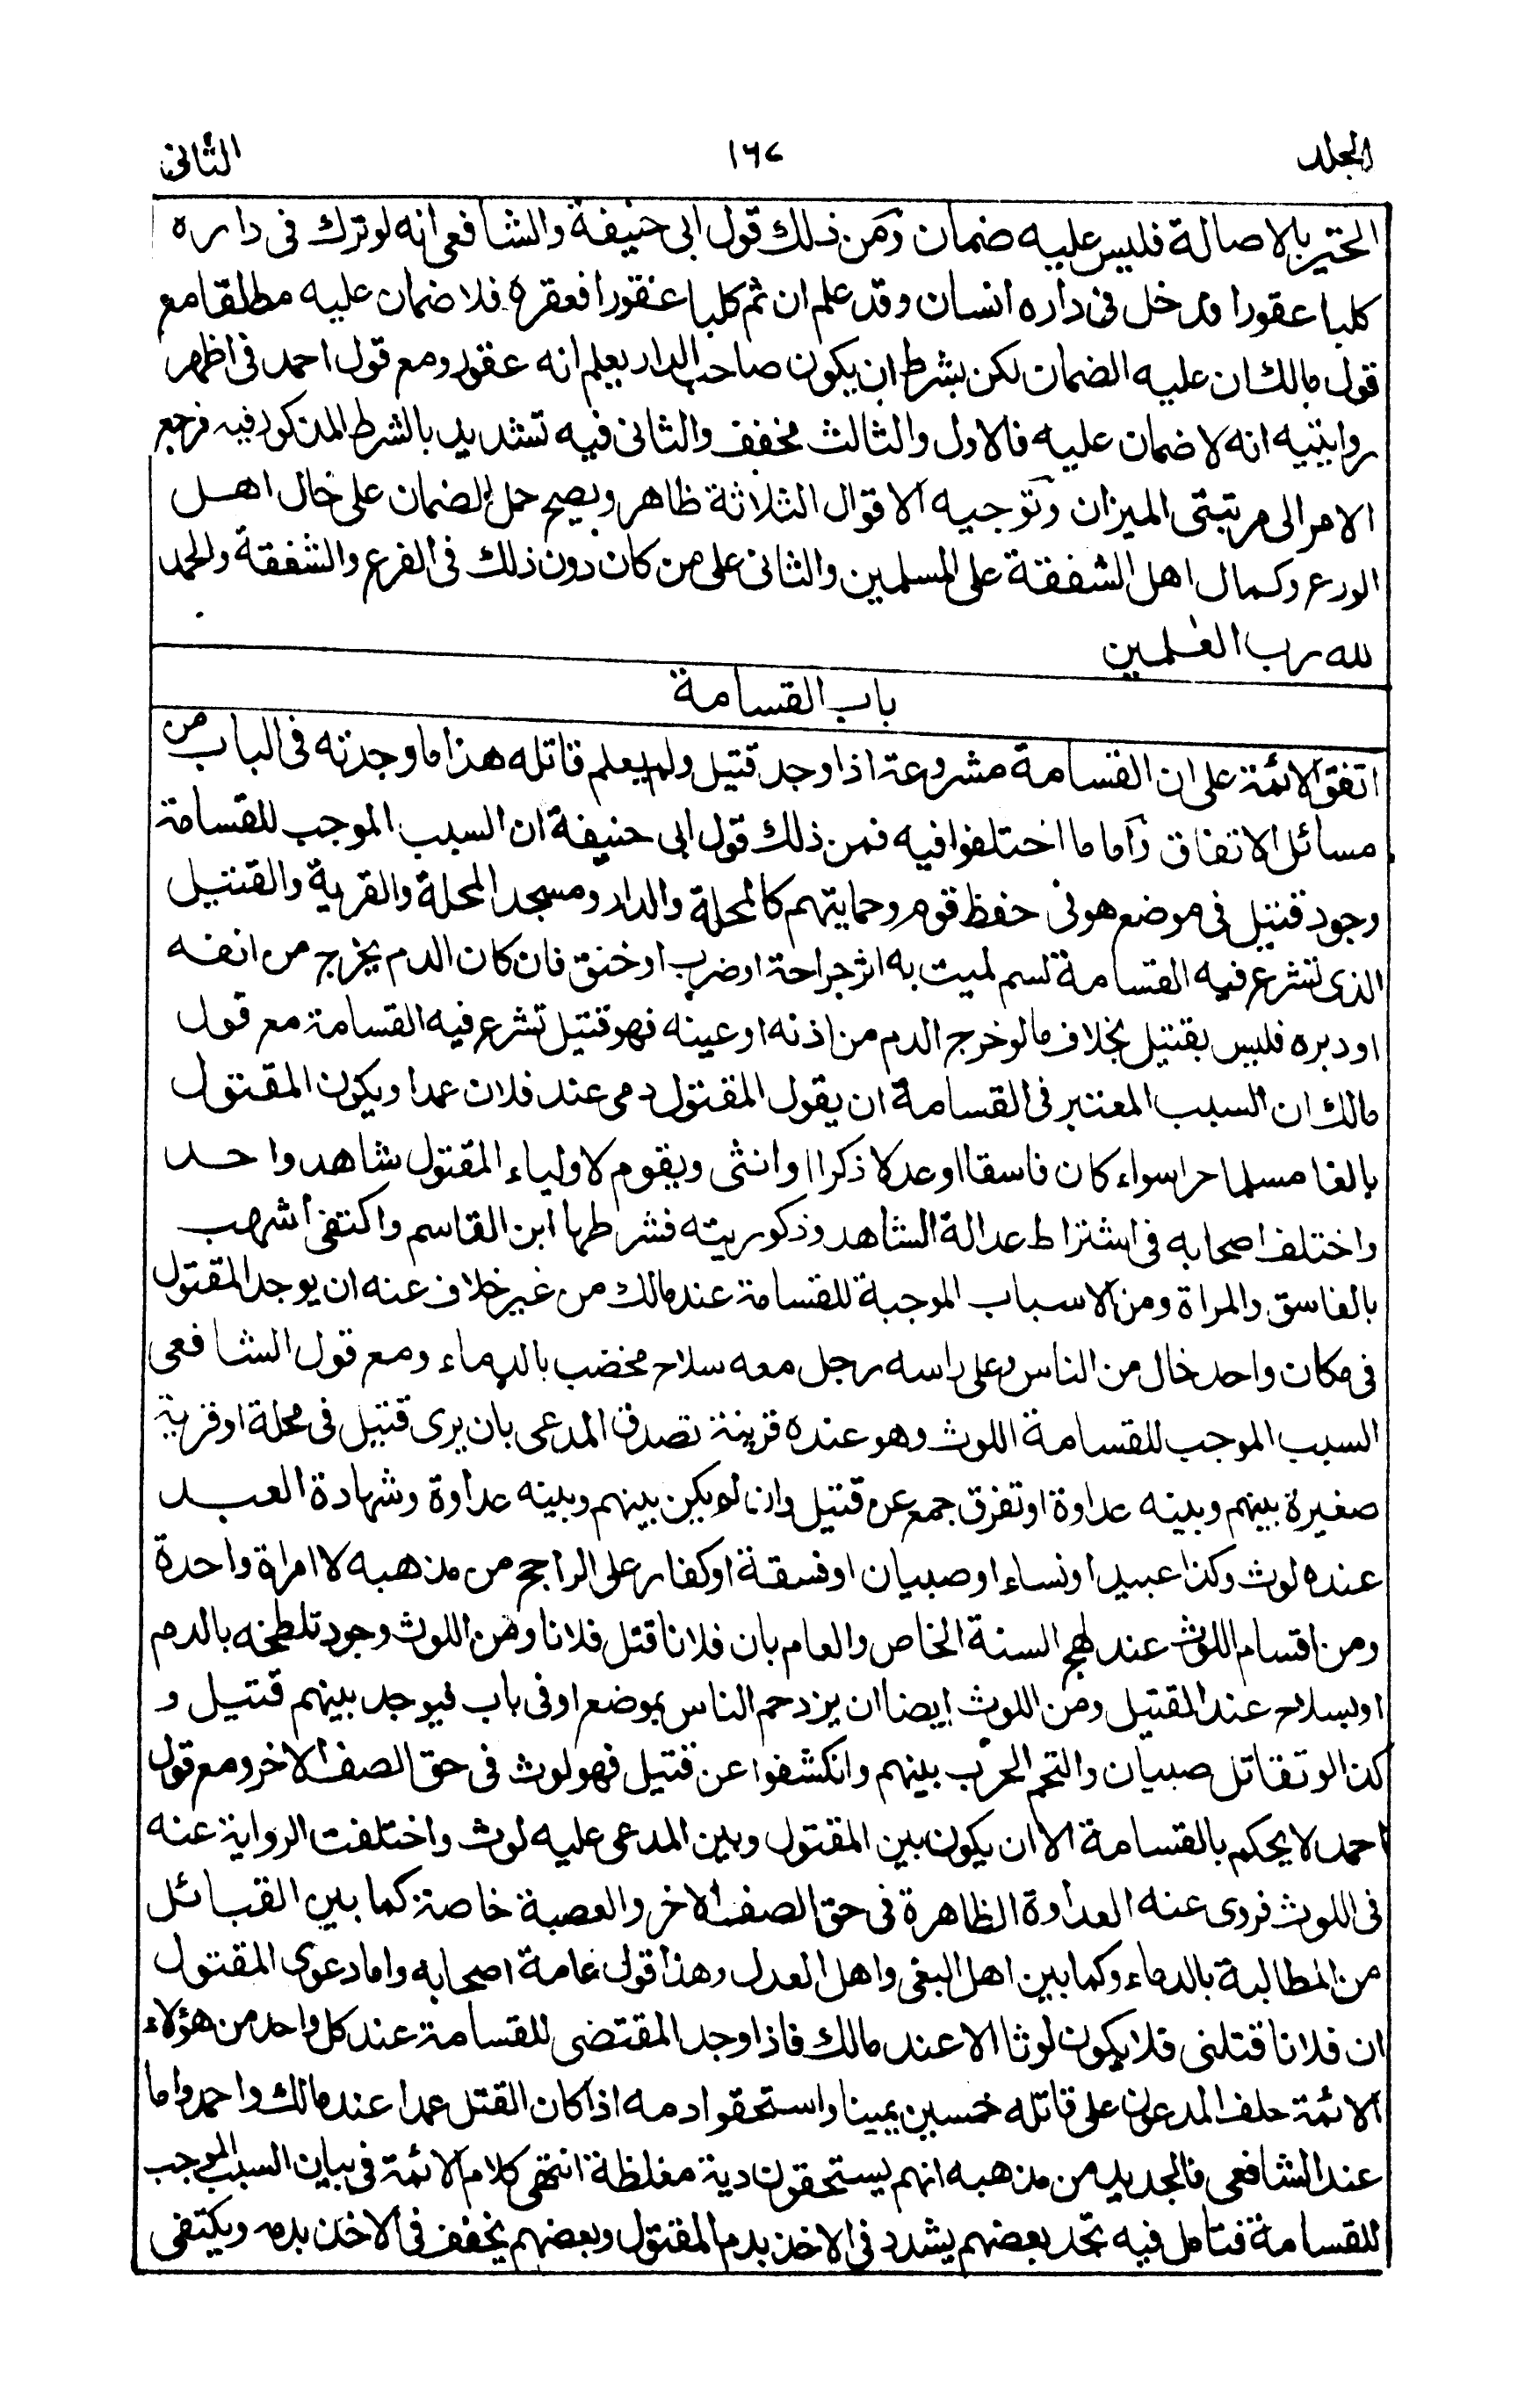 المجلد ١٦٧ الثانى
الخير بالاصالة فليس عليه ضمان ومن ذلك قول ابى حنيفة والشافعى انه لوترك فى داره
كلبا عقورا فدخل فى داره انسان وقد علم ان ثم كلبا عقورا فعقره فلا ضمان عليه مطلقا مع
قول مالك ان عليه الضمان لكن بشرط ان يكون صاحب الدار يعلم انه عقور ومع قول احمد فى اظهر
روايتيه انه لا ضمان عليه فالاول والثالث مخفف والثانى فيه تشديد بالشرط المذكور فيه فرجع
الامر الى مرتبتى الميزان وتوجيه الاقوال الثلاثة ظاهر ويصح حمل الضمان على خال اهل
الورع وكمال اهل الشفقة على المسلمين والثانى على من كان دون ذلك فى الفرع والشفقة والحمد
لله رب العلمين
باب القسامة
اتفق الائمة على ان القسامة مشروعة اذا وجد قتيل ولم يعلم قاتله هذا ما وجدته فى الباب من
مسائل الاتفاق واما ما اختلفوا فيه فمن ذلك قول ابى حنيفة ان السبب الموجب للقسامة
وجود قتيل فى موضع هو فى حفظ قوم وحمايتهم كالمحلة والدار ومسجد المحلة والقرية والقتيل
الذى تشرع فيه القسامة اسم لميت به اثر جراحة او ضرب او خنق فان كان الدم يخرج من انفه
او دبره فليس بقتيل بخلاف ما لو خرج الدم من اذنه او عينه فهو قتيل تشرع فيه القسامة مع قول
مالك ان السبب المعتبر فى القسامة ان يقول المقتول دمى عند فلان عمدا ويكون المقتول
بالغا مسلما حرا سواء كان فاسقا او عدلا ذكرا او انثى ويقوم لاولياء المقتول شاهد واحد
واختلف اصحابه فى اشتراط عدالة الشاهد وذكوريته فشرطها ابن القاسم واكتفى اشهب
بالفاسق والمراة ومن الاسباب الموجبة للقسامة عند مالك من غير خلاف عنه ان يوجد المقتول
فى مكان واحد خال من الناس وعلى راسه رجل معه سلاح مخضب بالدماء ومع قول الشافعى
السبب الموجب للقسامة اللوث وهو عنده قرينة تصدق المدعى بان يرى قتيل فى محلة او قرية
صغيرة بينهم وبينه عداوة او تفرق جمع عن قتيل وان لم يكن بينهم وبينه عداوة وشهادة العبد
عنده لوث وكذا عبيد او نساء او صبيان او فسقة او كفار على الراجح من مذهبه لا امراة واحدة
ومن اقسام اللوث عند لهج السنة الخاص والعام بان فلانا قتل فلانا ومن اللوث وجود تلطخه بالدم
او بسلاح عند المقتيل ومن اللوث ايضا ان يزدحم الناس بموضع او فى باب فيوجد بينهم قتيل و
كذا لو تقاتل صبيان والتحم الحرب بينهم وانكشفوا عن قتيل فهو لوث فى حق الصف الاخر ومع قول
احمد لا يحكم بالقسامة الا ان يكون بين المقتول وبين المدعى عليه لوث واختلفت الرواية عنه
فى اللوث فروى عنه العداوة الظاهرة فى حق الصف الاخر والعصبة خاصة كما بين القبائل
من المطالبة بالدماء وكما بين اهل البغى واهل العدل وهذا قول عامة اصحابه واما دعوى المقتول
ان فلانا قتلنى فلا يكون لوثا الا عند مالك فاذا وجد المقتضى للقسامة عند كل واحد من هؤلاء
الائمة حلف المدعون على قاتله خمسين يمينا واستحقوا دمه اذا كان القتل عمدا عند مالك واحمد واما
عند الشافعى فالجديد من مذهبه انهم يستحقون دية مغلظة انتهى كلام الائمة فى بيان السبب الموجب
للقسامة فتامل فيه تجد بعضهم يشدد فى الاخذ بدم المقتول وبعضهم يخفف فى الاخذ بدمه ويكتفى